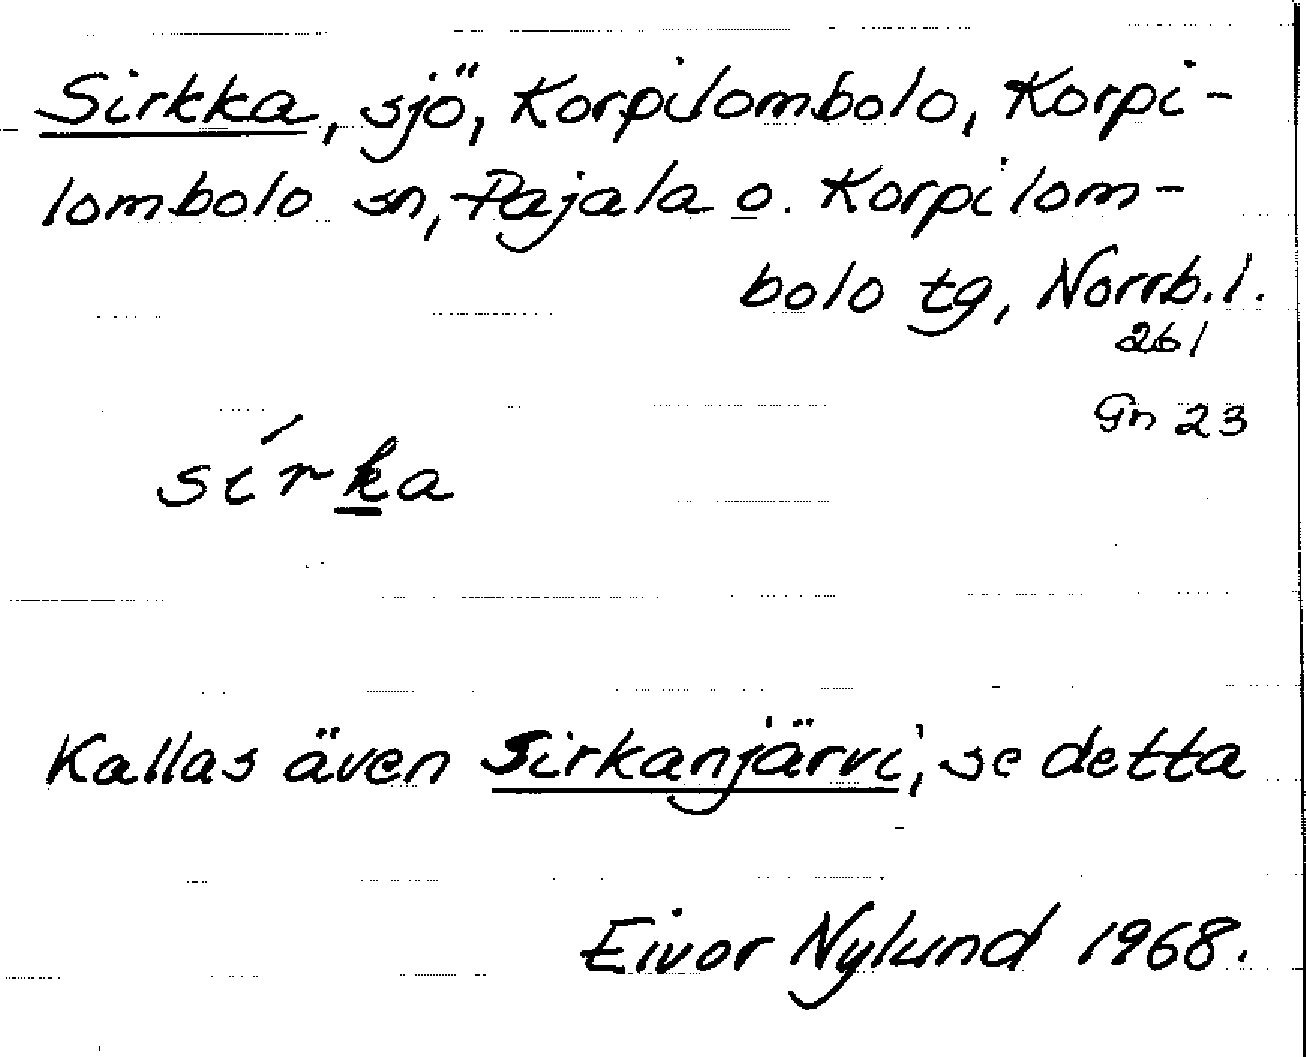 Sirkka, sjö, Korpilombolo, Korpi-
lombolo sn, Pajala o. Korpilom-
bolo tg, Norrb. l.
26 l
Gn 23
sírka
Kallas även Sirkanjärvi, se detta
Eivor Nylund 1968.